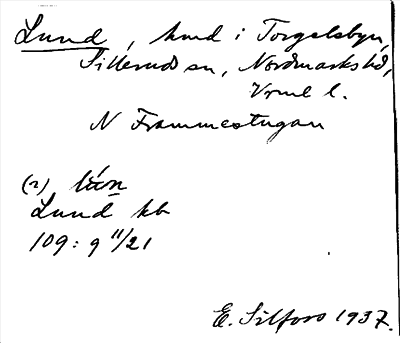 Lund, hmd i Torgelsbyn,
Sillerud sn, Nordmarks hd,
Vrml l.
N Frammestugan
(2) lún
Lund kb
109: 9 11/21
E. Silfors 1937.